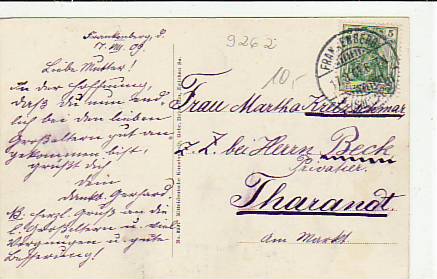 Frankenberg, d.
17. VII. 09.
Liebe Mutter!
In der Hoffnung,
daß Du nun end-
lich bei den lieben
Großeltern gut an-
gekommen bist,
grüßt dich
Dein
dankb. Gerhard.
N.B. Herzl. Gruß an die
l. Großeltern u. viel
Vergnügen u. gute
Besserung!
9262
10,-
5
FRANKENBERG
Frau Martha Kretzschmar
z. Z. bei Herrn Beck
Privatier.
Tharandt.
Am Markt